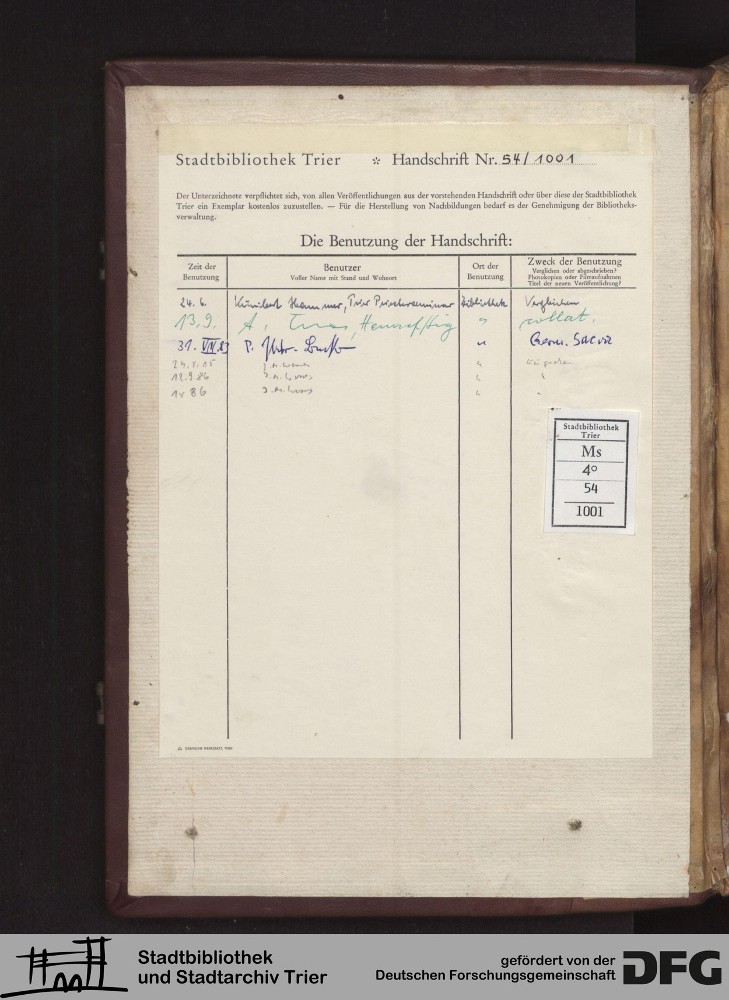 Stadtbibliothek Trier * Handschrift Nr. 54/1001
Der Unterzeichnete verpflichtet sich, von allen Veröffentlichungen aus der vorstehenden Handschrift oder über diese der Stadtbibliothek
Trier ein Exemplar kostenlos zuzustellen. — Für die Herstellung von Nachbildungen bedarf es der Genehmigung der Bibliotheks-
verwaltung.
Die Benutzung der Handschrift:
Zeit der
Benutzung
Benutzer
Voller Name mit Stand und Wohnort
Ort der
Benutzung
Zweck der Benutzung
Verglichen oder abgeschrieben?
Photokopien oder Filmaufnahmen
Titel der neuen Veröffentlichung?
24. 6. Kunibert Hammer, Trier Priesterseminar Bibliothek Vergleichen
13.9. A. " collat.
31. VIII. 83 P. " Germ. Sacra
12.9.86
86
Stadtbibliothek
Trier
Ms
4°
54
1001
GRAPHISCHE WERKSTATT, TRIER
Stadtbibliothek
und Stadtarchiv Trier
gefördert von der
Deutschen Forschungsgemeinschaft
DFG